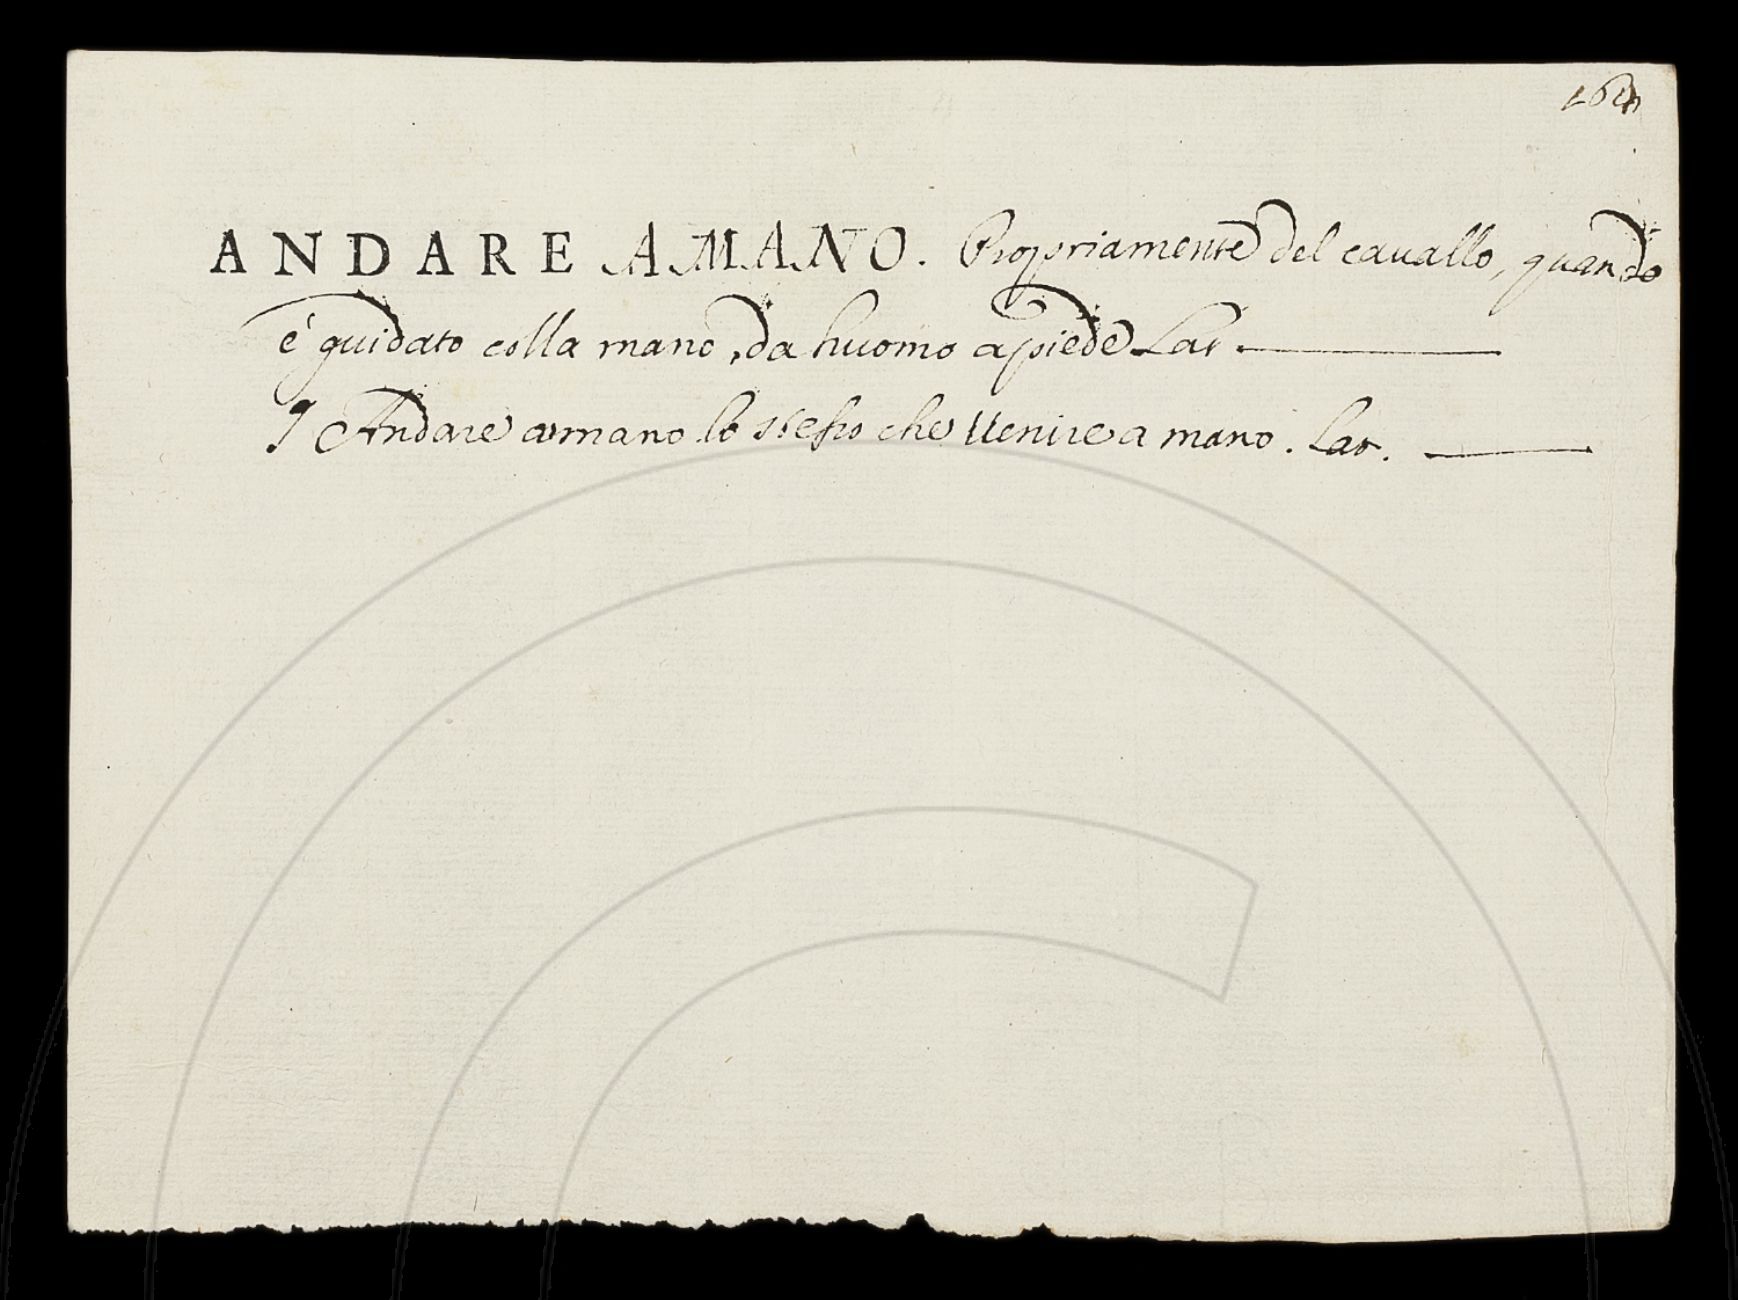 ANDARE AMANO. Propriamente del cauallo, quando
é guidato colla mano, da huomo apiede Lat
¶ Andare amano lo stesso che Uenire a mano. Lat.